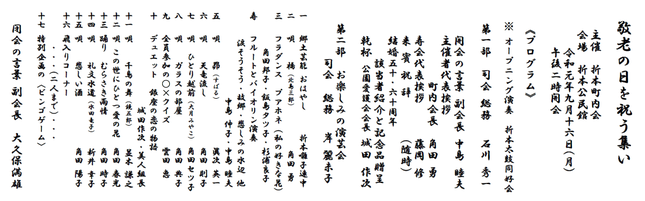 敬老の日を祝う集い
主催 折本町内会
会場 折本公民館
令和元年九月十六日(月)
午後二時開会
《プログラム》
※ オープニング演奏 折本太鼓同好会
第一部 司会 総務 石川 秀一
開会の言葉 副会長 中島 睦夫
主催者代表挨拶 町内会長 角田 勇
寿会代表挨拶 藤岡 修
来賓祝辞 (随時)
結婚五十・六十周年
該当者紹介と記念品贈呈
公園愛護会会長 城田 作次
乾杯
第二部 お楽しみの演芸会
司会 総務 岸 麗未子
一 郷土芸能 おはやし 折本囃子連中
二 唄 橋 角田 勇
三 フラダンス ブアホネ (私の好きな花)
角田邦子・飯島タツ子・杉浦良子
寿 フルートとバイオリン演奏
波そうそう・故郷・悲しみの水辺 他
中島 仲子・中島 睦夫
五 唄 昴(すばる) 眞次 英一
六 唄 天竜流し 角田 則子
七 唄 ひとり越前 角田 セツ子
八 唄 ガラスの部屋 角田 典子
九 全員参加の〇×クイズ 雲田 恵
十 デュエット 銀座の恋の物語
城田作次・美人組長
十一 唄 千鳥の舞 並木 謙之
十二 唄 この世にひとつ愛の花 角田 春光
十三 踊り むらさき雨情 角田 時子
十四 唄 礼文水道 新井 幸子
十五 唄 悲しい酒 角田 陽子
十六 飛入りコーナー
・・・・(三人まで)・・・
十七 特別企画の(ビンゴゲーム)
閉会の言葉 副会長 大久保満雄